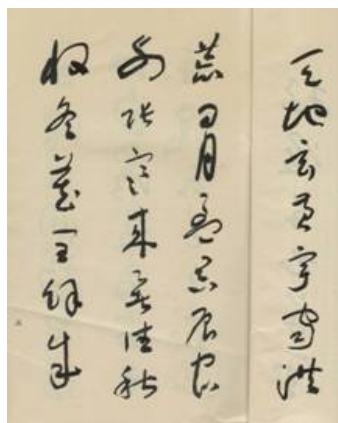 天地玄黄宇宙洪
荒日月盈昃辰宿
列张寒来暑往秋
收冬藏闰余成